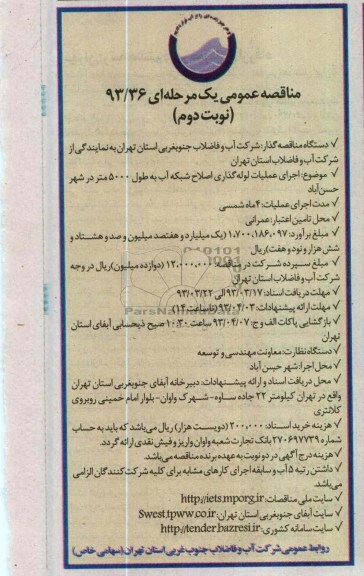 مناقصه عمومی یک مرحله‌ای ۹۳/۳۶
(نوبت دوم)
✓ دستگاه مناقصه گذار: شرکت آب و فاضلاب جنوبغربی استان تهران به نمایندگی از
شرکت آب و فاضلاب استان تهران
✓ موضوع: اجرای عملیات لوله‌گذاری اصلاح شبکه آب به طول ۵۰۰۰ متر در شهر
حسن‌آباد
✓ مدت اجرای عملیات: ۴ ماه شمسی
✓ محل تامین اعتبار: عمرانی
✓ مبلغ برآورد: ۱،۷۰۰،۱۸۶،۰۹۷ (یک میلیارد و هفتصد میلیون و صد و هشتاد و
شش هزار و نود و هفت) ریال
✓ مبلغ سپرده شرکت در مناقصه: ۱۲،۰۰۰،۰۰۰ (دوازده میلیون) ریال در وجه
شرکت آب و فاضلاب استان تهران
✓ مهلت دریافت اسناد: ۹۳/۰۳/۱۷ الی ۹۳/۰۳/۲۲
✓ مهلت ارائه پیشنهادات: ۹۳/۰۴/۰۳ (تا ساعت ۱۴)
✓ بازگشایی پاکات الف و ج: ۹۳/۰۴/۰۷ ساعت ۱۰:۳۰ صبح ذیحسابی آبفای استان
تهران
✓ دستگاه نظارت: معاونت مهندسی و توسعه
✓ محل اجرا: شهر حسن آباد
✓ محل دریافت اسناد و ارائه پیشنهادات: دبیرخانه آبفای جنوبغربی استان تهران
واقع در تهران کیلومتر ۲۲ جاده ساوه-شهرک واوان-بلوار امام خمینی روبروی
کلانتری
✓ هزینه خرید اسناد: ۲۰۰،۰۰۰ (دویست هزار) ریال می‌باشد که باید به حساب
شماره ۲۷۰۶۹۷۷۳۹ بانک تجارت شعبه واوان واریز و فیش نقدی ارائه گردد.
✓ هزینه درج آگهی در دو نوبت به عهده برنده مناقصه می‌باشد.
✓ داشتن رتبه ۵ آب و سابقه اجرای کارهای مشابه برای کلیه شرکت‌کنندگان الزامی
می‌باشد.
✓ سایت ملی مناقصات: http://iets.mporg.ir
✓ سایت آبفای جنوبغربی استان تهران: Swest.tpww.co.ir
✓ سایت سامانه کشوری: http://tender.bazresi.ir
روابط عمومی شرکت آب و فاضلاب جنوب غربی استان تهران (سهامی خاص)